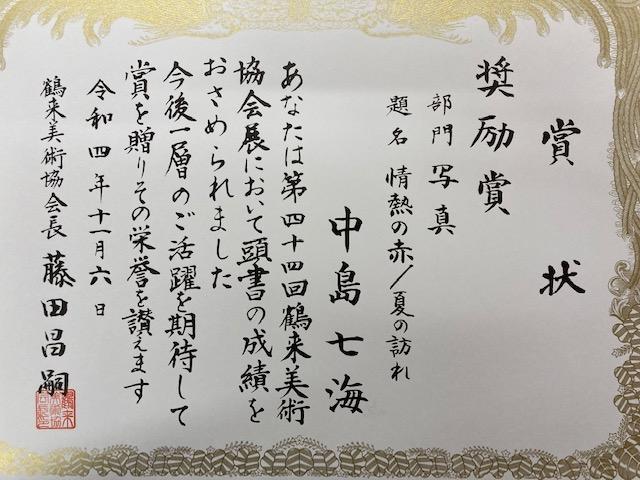 賞状
奨励賞
部門 写真
題名 情熱の赤/夏の訪れ
中島七海
あなたは第四十四回鶴来美術
協会展において頭書の成績を
おさめられました
今後一層のご活躍を期待して
賞を贈りその栄誉を讃えます
令和四年十一月六日
鶴来美術協会長 藤田昌嗣